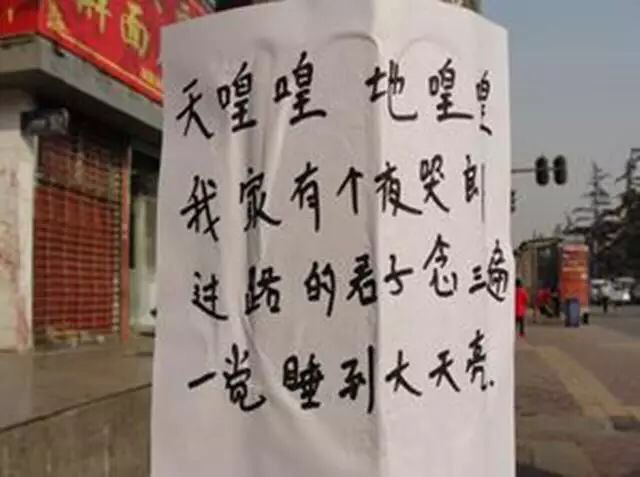 解面
天喤喤 地喤喤
我家有个夜哭郎
过路的君子念三遍
一觉睡到大天亮.